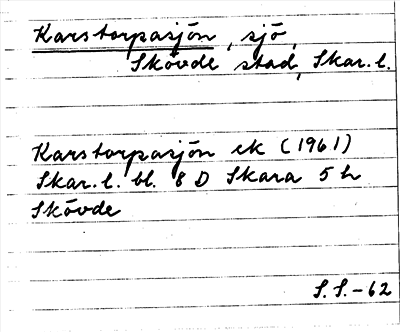 Karstorpasjön, sjö,
Skövde stad, Skar. l.
Karstorpasjön ek (1961)
Skar. l. bl. 8 D Skara 5 h
Skövde
S. S. -62